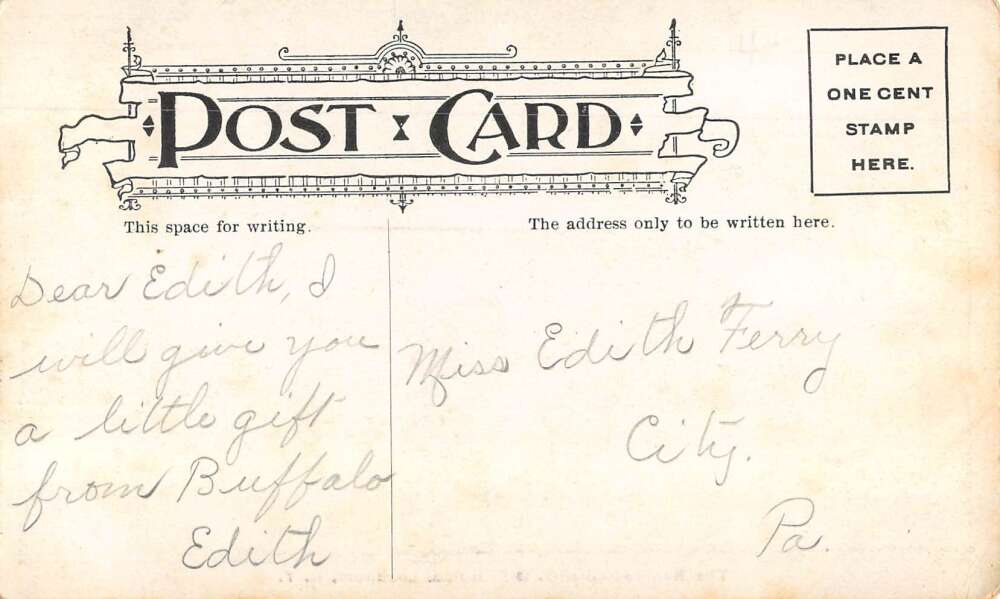 POST CARD
PLACE A
ONE CENT
STAMP
HERE.
This space for writing.
The address only to be written here.
Dear Edith, I
will give you
a little gift
from Buffalo
Edith
Miss Edith Ferry
City.
Pa.